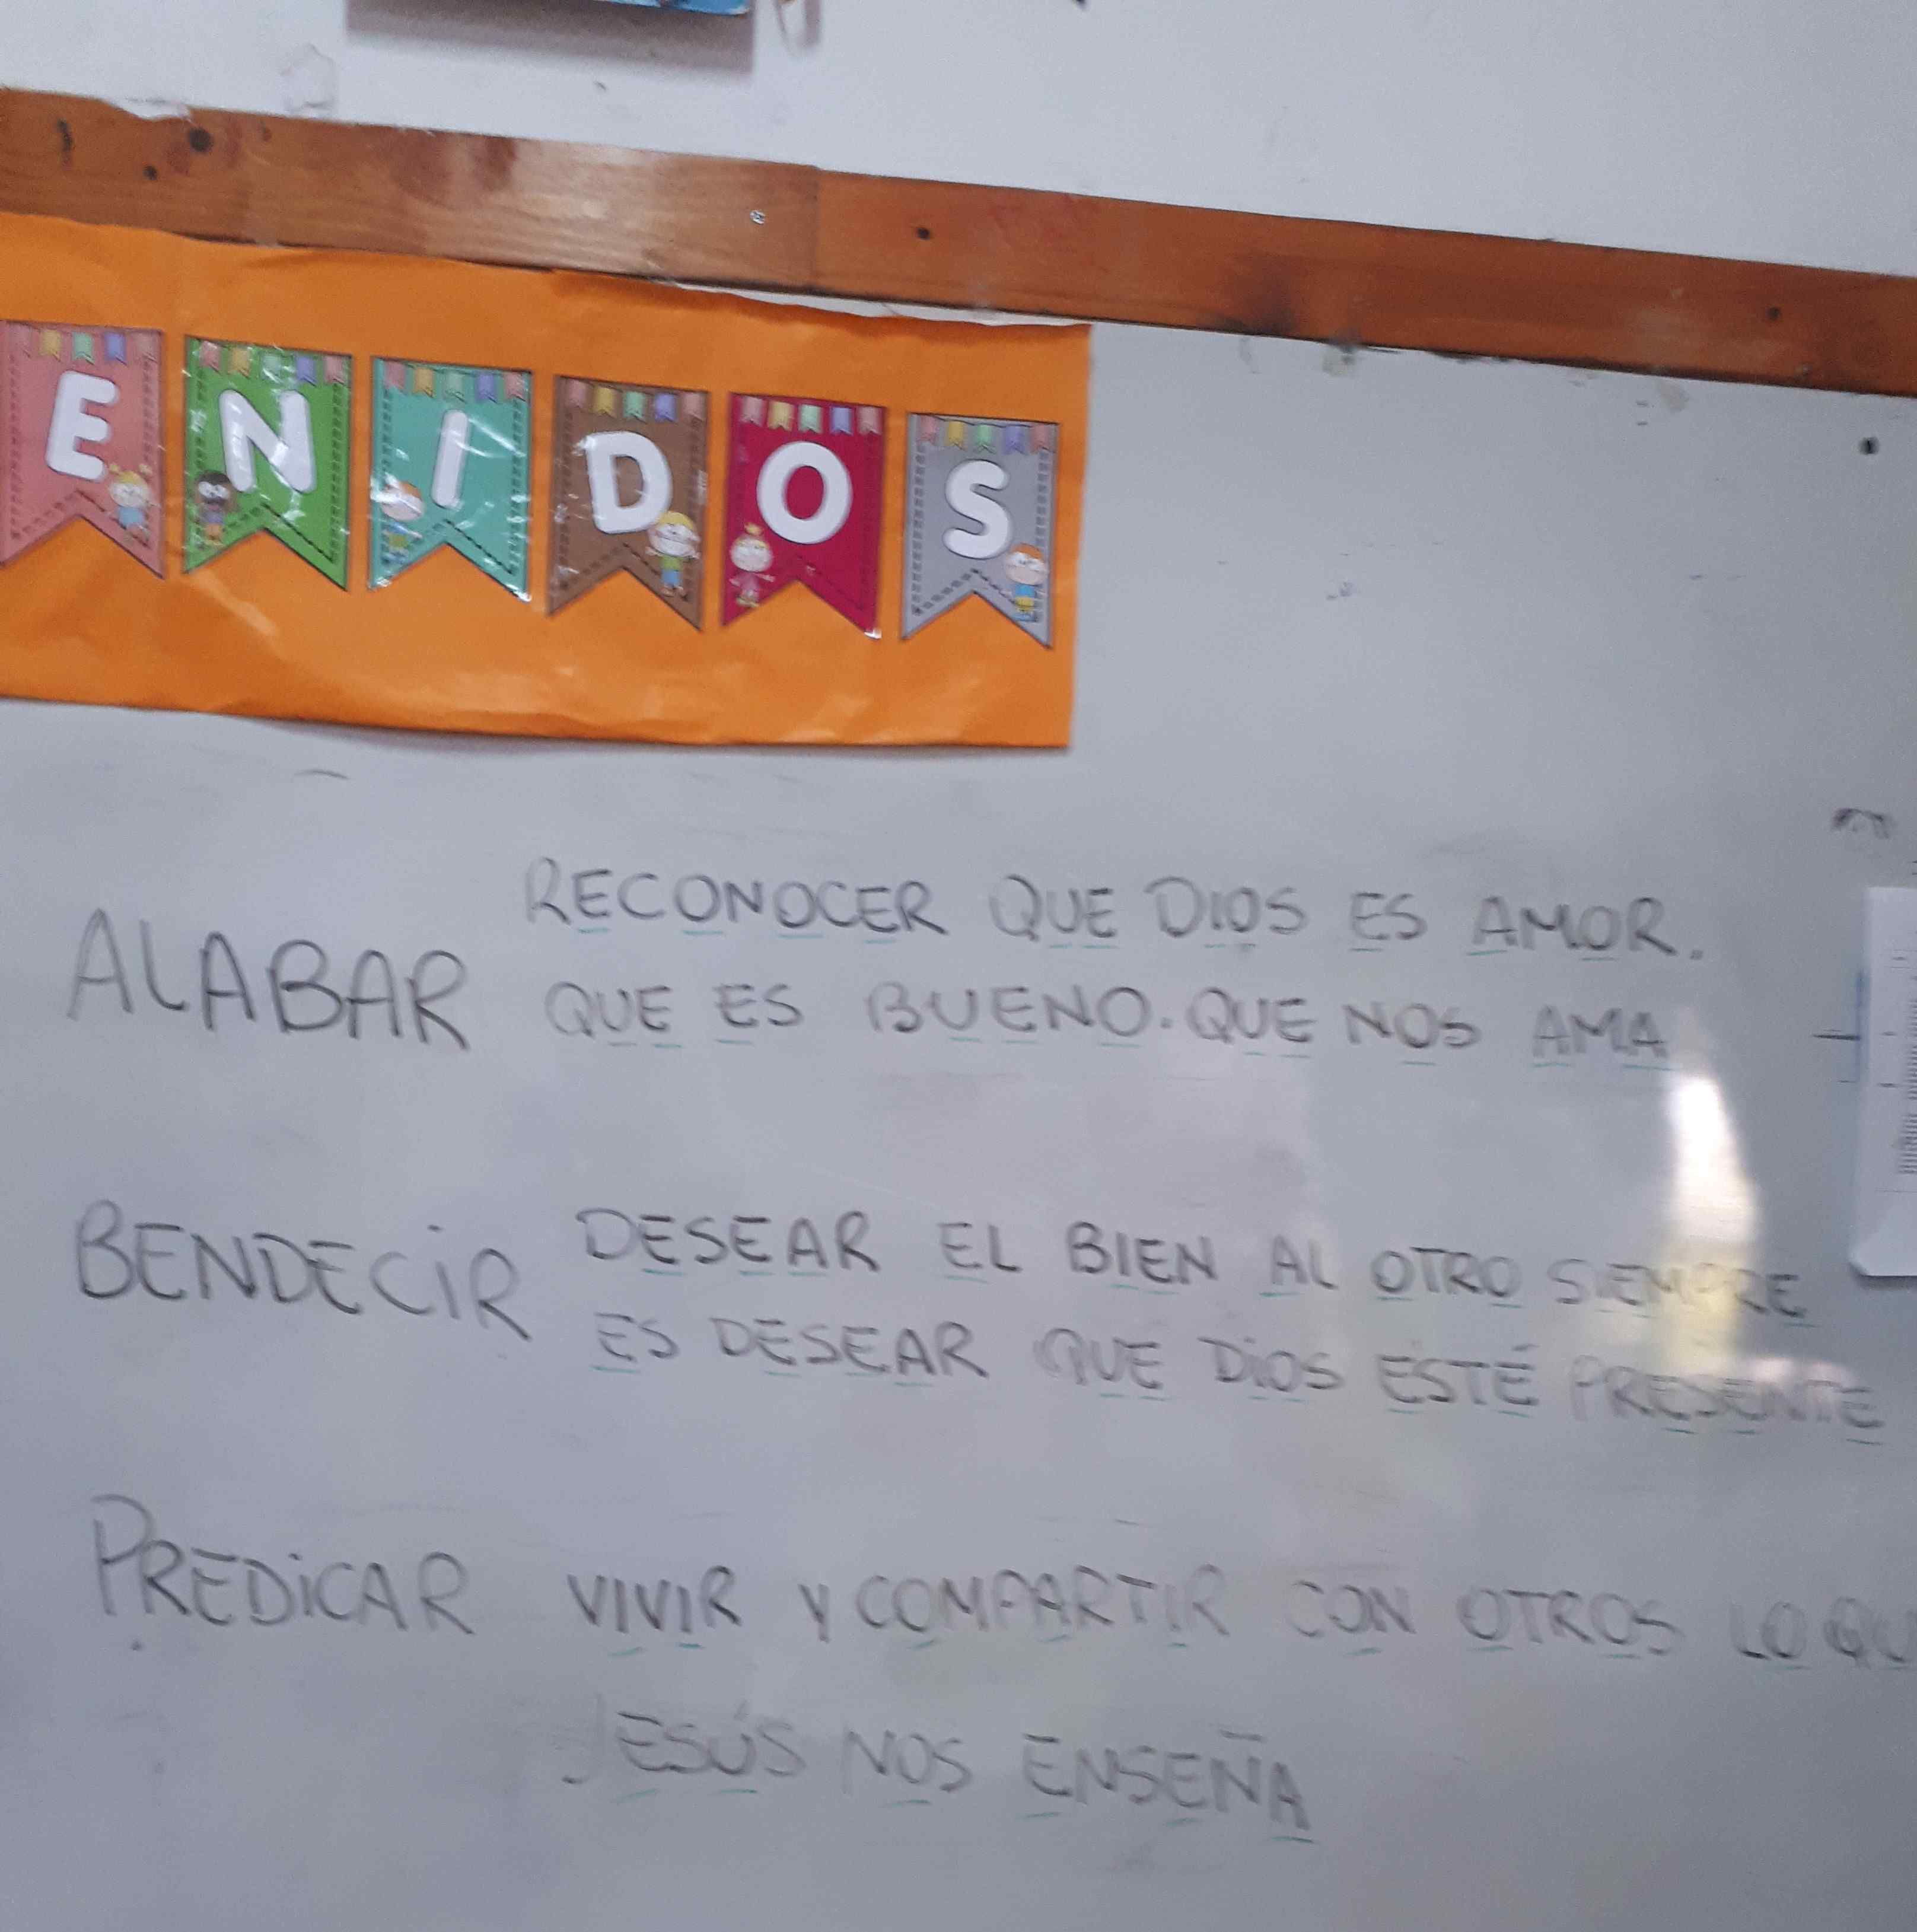 ENIDOS
RECONOCER QUE DIOS ES AMOR.
ALABAR QUE ES BUENO. QUE NOS AMA
BENDECIR DESEAR EL BIEN AL OTRO SIEMPRE
ES DESEAR QUE DIOS ESTÉ PRESENTE
PREDICAR VIVIR Y COMPARTIR CON OTROS LO QU
JESÚS NOS ENSEÑA